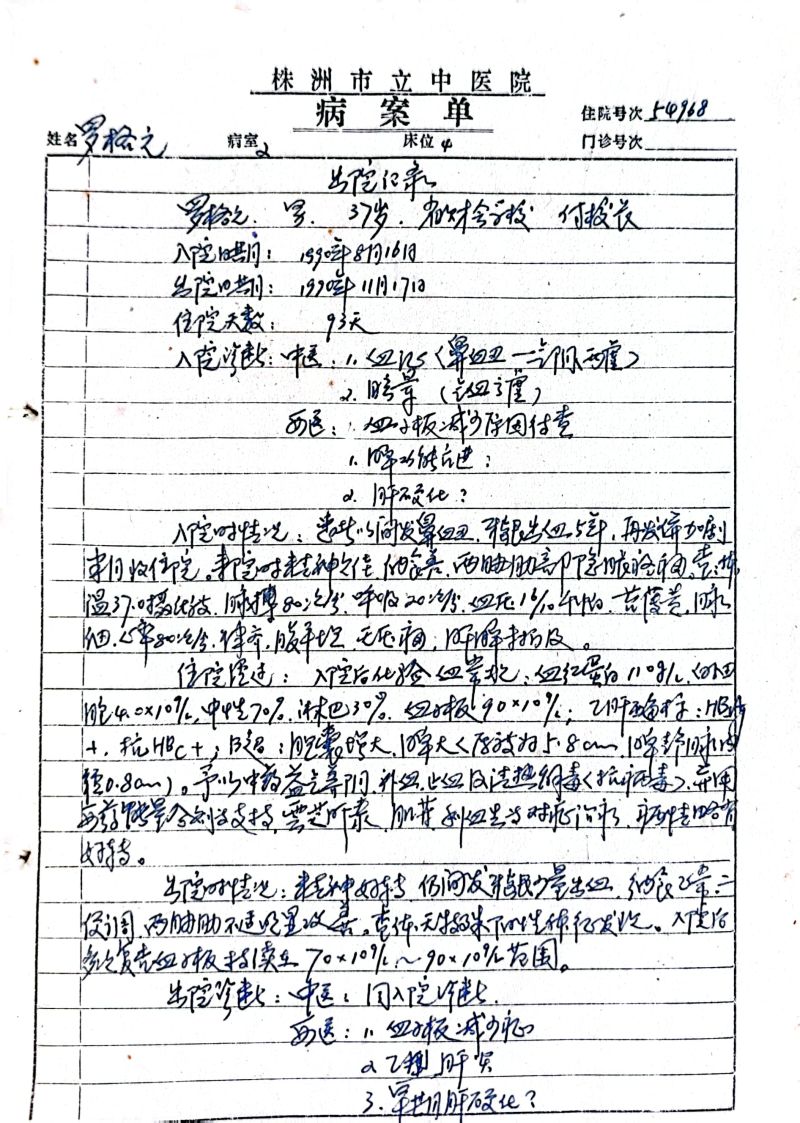 株洲市立中医院
病案单
住院号次 54968
姓名 罗格元 病室 2 床位 4 门诊号次
出院记录
罗格元、男、37岁、省财会学校 付校长
入院日期: 1990年8月16日
出院日期: 1990年11月17日
住院天数: 93天
入院诊断: 中医: 1. 血证(鼻衄—气阴两虚)
2. 胁 (气血亏虚)
西医: 血小板减少原因待查
1. 脾功能亢进;
2. 肝硬化?
入院时情况: 患者以间发鼻衄、牙龈出血5年, 再发并加剧
半月收住院。来院时精神欠佳, 纳食, 两胁肋部隐胀
温37.0摄氏度, 脉搏80次/分, 呼吸20次/分, 血压16/10, 苔薄黄, 脉
细, 心率80次/分, 律齐, 腹平坦, 无压痛, 肝脾未扪及。
住院经过: 入院后化验血常规: 血红蛋白110g/L, 白细
胞4.0×10⁹/L, 中性70%, 淋巴30%, 血小板90×10⁹/L; 乙肝: HB
+, 抗HBc+; B超: 胆囊增大, 脾大(厚度为5.8cm, 脾静脉内
径0.8cm)。予以中药益气养阴, 补血止血及清热解毒(抗病毒), 并用
西药能量合剂支持, 肌苷, 利血生等对症治疗, 病情略有
好转。
出院时情况: 精神好转, 仍间发牙龈少量出血, 纳食正常, 二
便调, 两胁肋不适明显改善。查体无特殊下阳性体征发现。入院后
多次复查血小板持续在70×10⁹/L~90×10⁹/L范围。
出院诊断: 中医: 同入院诊断.
西医: 1. 血小板减少症
2. 乙型肝炎
3. 早期肝硬化?